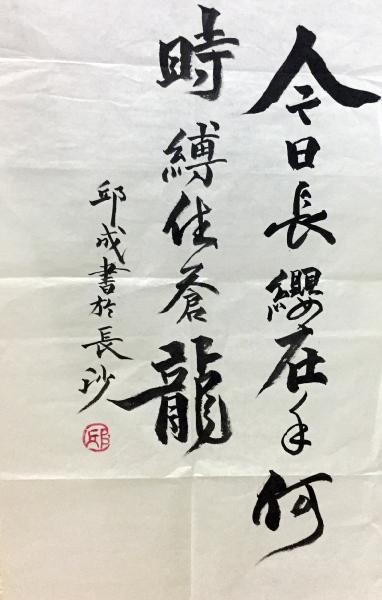 今日長纓在手何
時縛住蒼龍
邱成書於長沙
邱